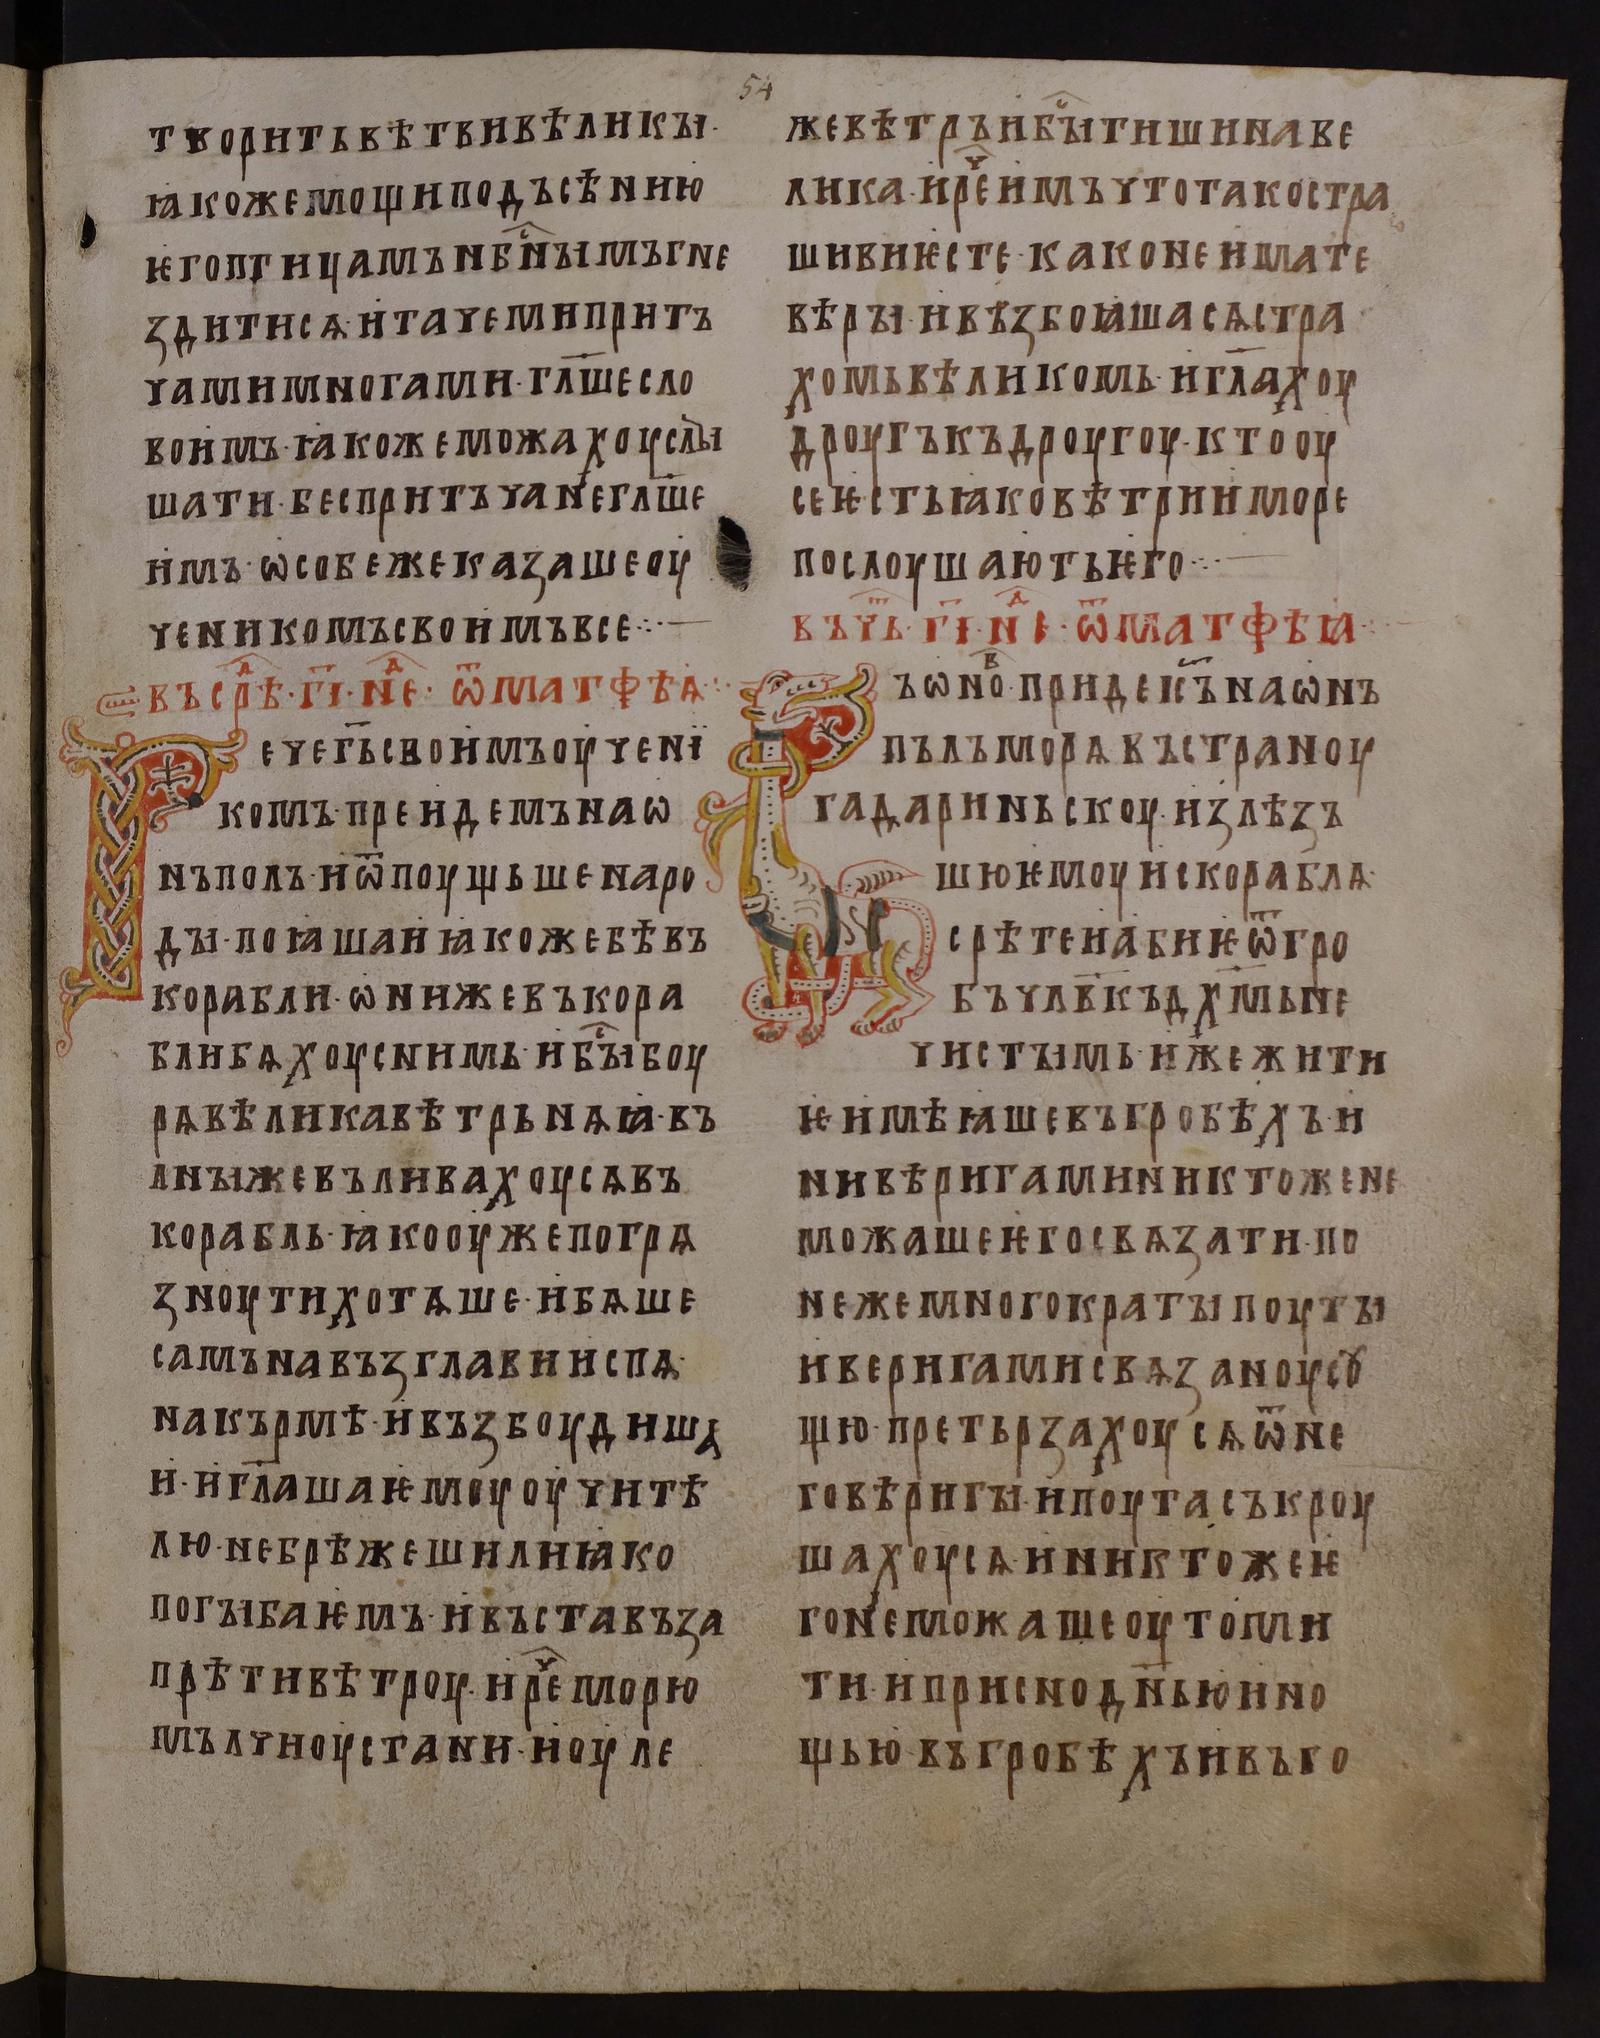 54
творить вѣтви вѣликы·
ꙗкоже мощи подъ сѣнию
ѥго птицамъ нбⷭ҇нымъ гне
здитисѧ· и тачеми прит
чами многами· гл҃ше сло
во имъ· ꙗкоже можахоу слы
шати· бес притъча не гл҃ше
имъ· ѡсобе же казаше оу
ченикомъ своимъ все·:·—
въ срⷣѣ· г҃і· нⷣе· ѿ матфѣѧ·:·
Рече гь҃ своимъ оучені
комъ· преидемъ на ѡ
нъ полъ· и ѿпоущьше наро
ды· поꙗша и ꙗкоже бѣ въ
корабли· ѡни же въ кора
бли бѧхоу с нимь· и быⷭ҇ боу
рѧ вѣлика вѣтрьнѧꙗ· въ
лны же въливахоусѧ въ
корабль· ꙗко оуже погрѧ
зноути хотѧше· и бѧше
самъ на възглавнии спѧ·
на кърмѣ· и възбоудишѧ
и· и гл҃аша ѥмоу оучитѣ
лю· не брѣжеши ли ꙗко
погыбаѥмъ· и въставъ за
прѣти вѣтроу· и реⷱ҇ морю
мълчи оустани· и оуле
же вѣтръ и быⷭ҇ тишина ве
лика· и реⷱ҇ имъ что тако стра
шиви ѥсте· како не имате
вѣры· и възбоꙗшасѧ стра
хомь вѣликомь· и гл҃ахоу
дроугъ къ дроугоу· кто оу
се ѥсть ꙗко вѣтри и море
послоушають ѥго·:·—
въ чⷮь· г҃і· нⷣе· ѿ матфѣꙗ·:·
Въ ѡноⷡ· приде іс҃ъ на ѡнъ
полъ морѧ въ страноу
гадариньскоу· излѣзъ
шю ѥмоу ис кораблѧ·
срѣте и абиѥ ѿ гро
бъ чл҃вкъ дх҃мь не
чистымь· иже жити
ѥ имѣꙗше въ гробѣхъ· и
ни вѣригами никтоже не
можаше ѥго свѧзати· по
неже многократы поуты
и веригами свѧзаноу сꙋ
щю· претьрзахоусѧ ѿ не
го вѣригы· и поута съкроу
шахоусѧ· и никтоже ѥ
го не можаше оутоми
ти· и присно дн҃ью и но
щью въ гробѣхъ и въ го